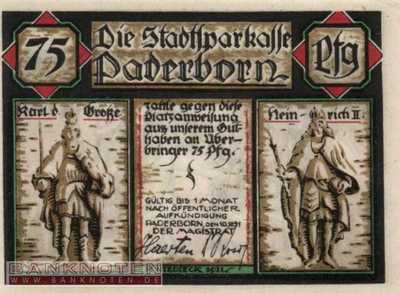 75
Die Stadtsparkasse
Paderborn
Pfg
Karl d. Große
zahle gegen diese
Platzanweisung
aus unserem Gut-
haben an Über-
bringer 75 Pfg.
Heinrich II.
GÜLTIG BIS 1 MONAT
NACH ÖFFENTLICHER
AUFKÜNDIGUNG
PADERBORN, DEN 10.
DER MAGISTRAT
BANKNOTEN
WWW.BANKNOTEN.DE